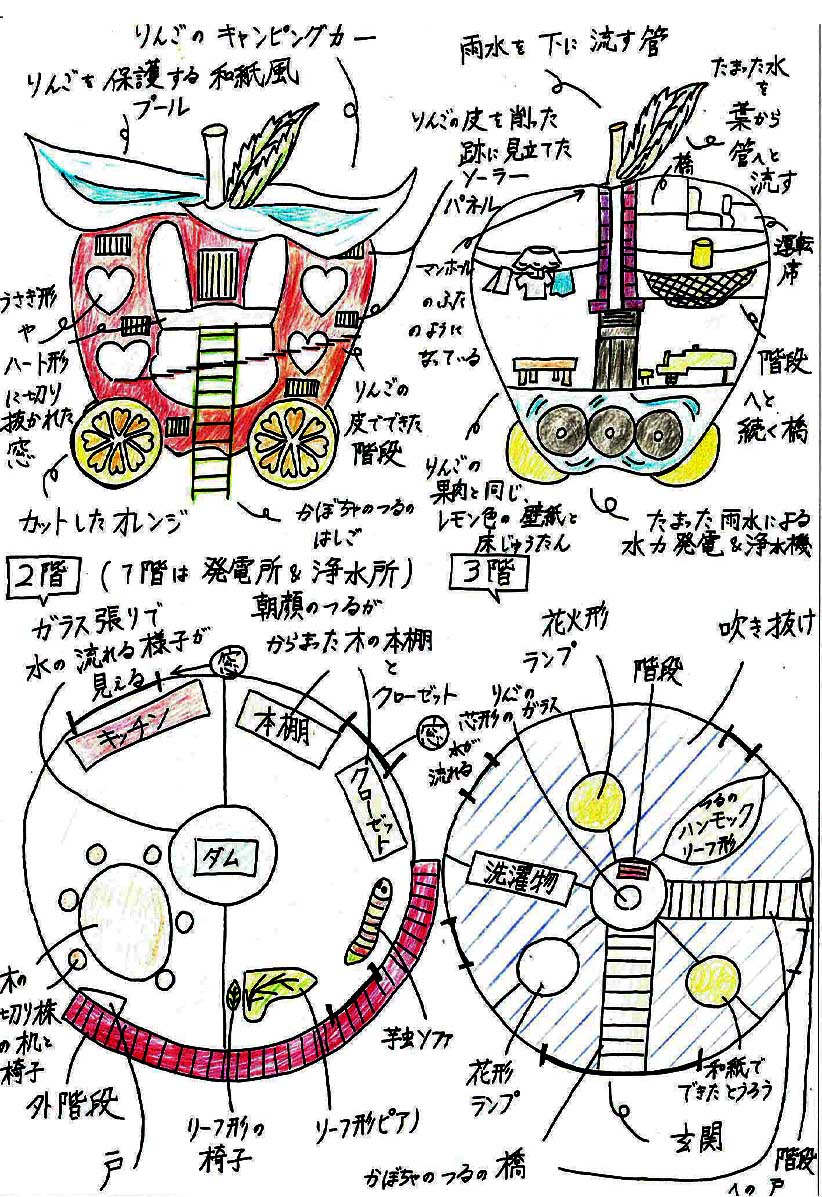 りんごの キャンピングカー
りんごを 保護する 和紙風
プール
うさぎ形
や
ハート形
に切り
抜かれた
窓
りんごの
皮でできた
階段
カットした オレンジ
かぼちゃのつるの
はしご
雨水を 下に 流す 管
たまった水
を
葉から
管へと
流す
りんごの皮を削った
跡に見立てた
ソーラー
パネル
橋
運転
席
マンホール
のふた
のように
なっている
階段
へと
続く橋
りんごの
果肉と同じ、
レモン色の 壁紙と
床じゅうたん
たまった 雨水による
水力発電&浄水機
2階 (1階は 発電所&浄水所)
ガラス張りで
水の流れる様子が
見える
朝顔のつるが
からまった木の本棚
と
クローゼット
窓
キッチン
本棚
クローゼット
窓
ダム
木の
切り株
の机と
椅子
外階段
戸
リーフ形の
椅子
リーフ形ピアノ
芋虫ソファ
3階
花火形
ランプ
階段
吹き抜け
りんごの
芯形のガラス
水が
流れる
つるの
ハンモック
リーフ形
洗濯物
花形
ランプ
和紙で
できたとうろう
玄関
かぼちゃのつるの橋
階段
への戸